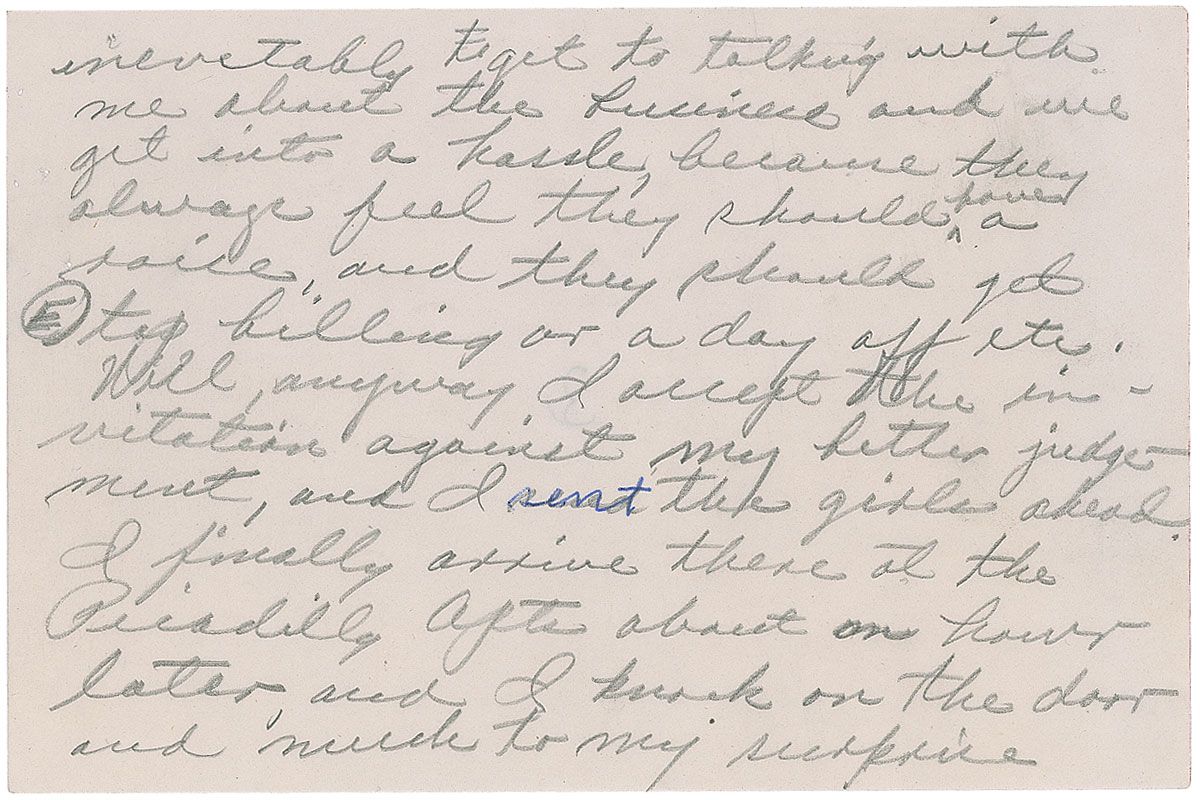 inevetably to get to talking with
me about the business and we
get into a hassle, because they
always feel they should have a
raise, and they should get
E top billing or a day off etc.
Well, anyway, I accept the in-
vitation against my better judge-
ment, and I sent the girls ahead.
I finally arrive there at the
Picadilly After about an hour
later, and I knock on the door
and much to my surprise